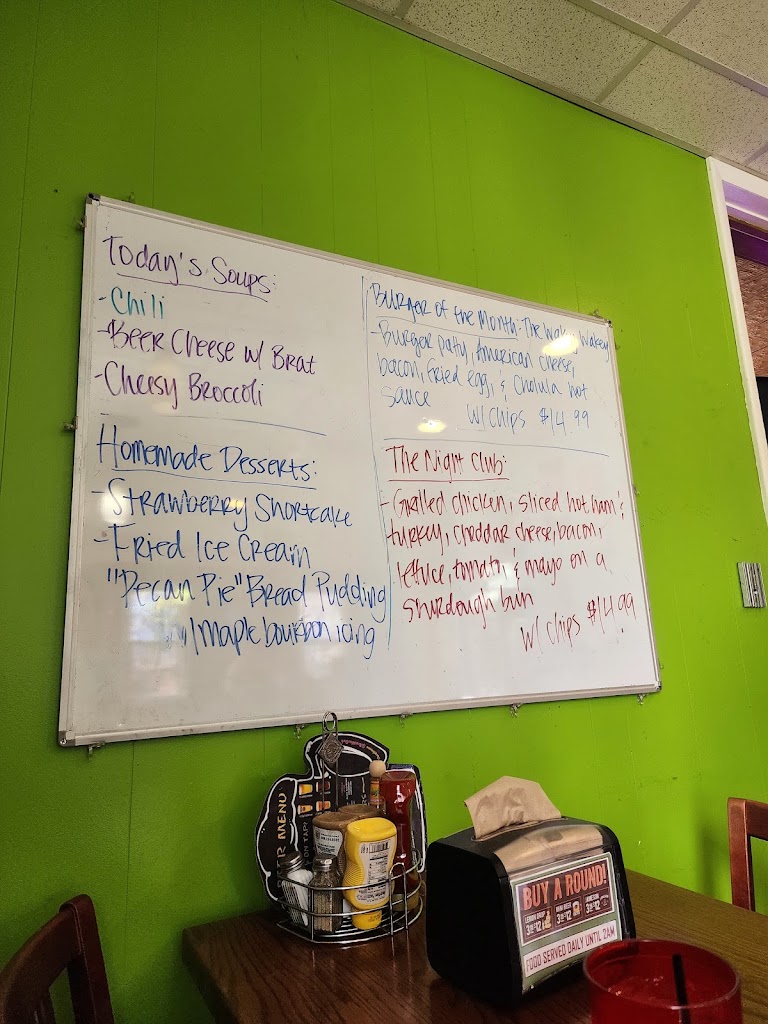 Today's Soups:
-Chili
-Beer Cheese w/ Brat
-Cheesy Broccoli
Homemade Desserts:
-Strawberry Shortcake
-Fried Ice Cream
"Pecan Pie" Bread Pudding
w/ maple bourbon icing
Burger of the Month: The Wakey Wakey
-Burger patty, American cheese,
bacon, fried egg, & Cholula hot
sauce w/ chips $14.99
The Night Club:
-Grilled chicken, sliced hot ham &
turkey, cheddar cheese, bacon,
lettuce, tomato, & mayo on a
sourdough bun
w/ chips $14.99
MENU
BUY A ROUND!
LEMON DROP
3 for $12
3 for $12
JAMESON
3 for $12
FOOD SERVED DAILY UNTIL 2AM